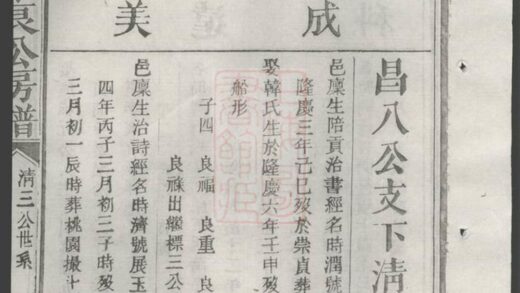 昌八公支下淸
成
邑廩生陪貢治書經名時潤號
隆慶三年己巳歿於崇貞葬
娶韓氏生於隆慶六年壬申歿
船形
子四 良福 良重 良
良祿出繼標三公
美
邑廩生治詩經名時濟號展玉
四年丙子三月初三子時歿
三月初一辰時葬桃園撮十
公房譜
淸三公世系